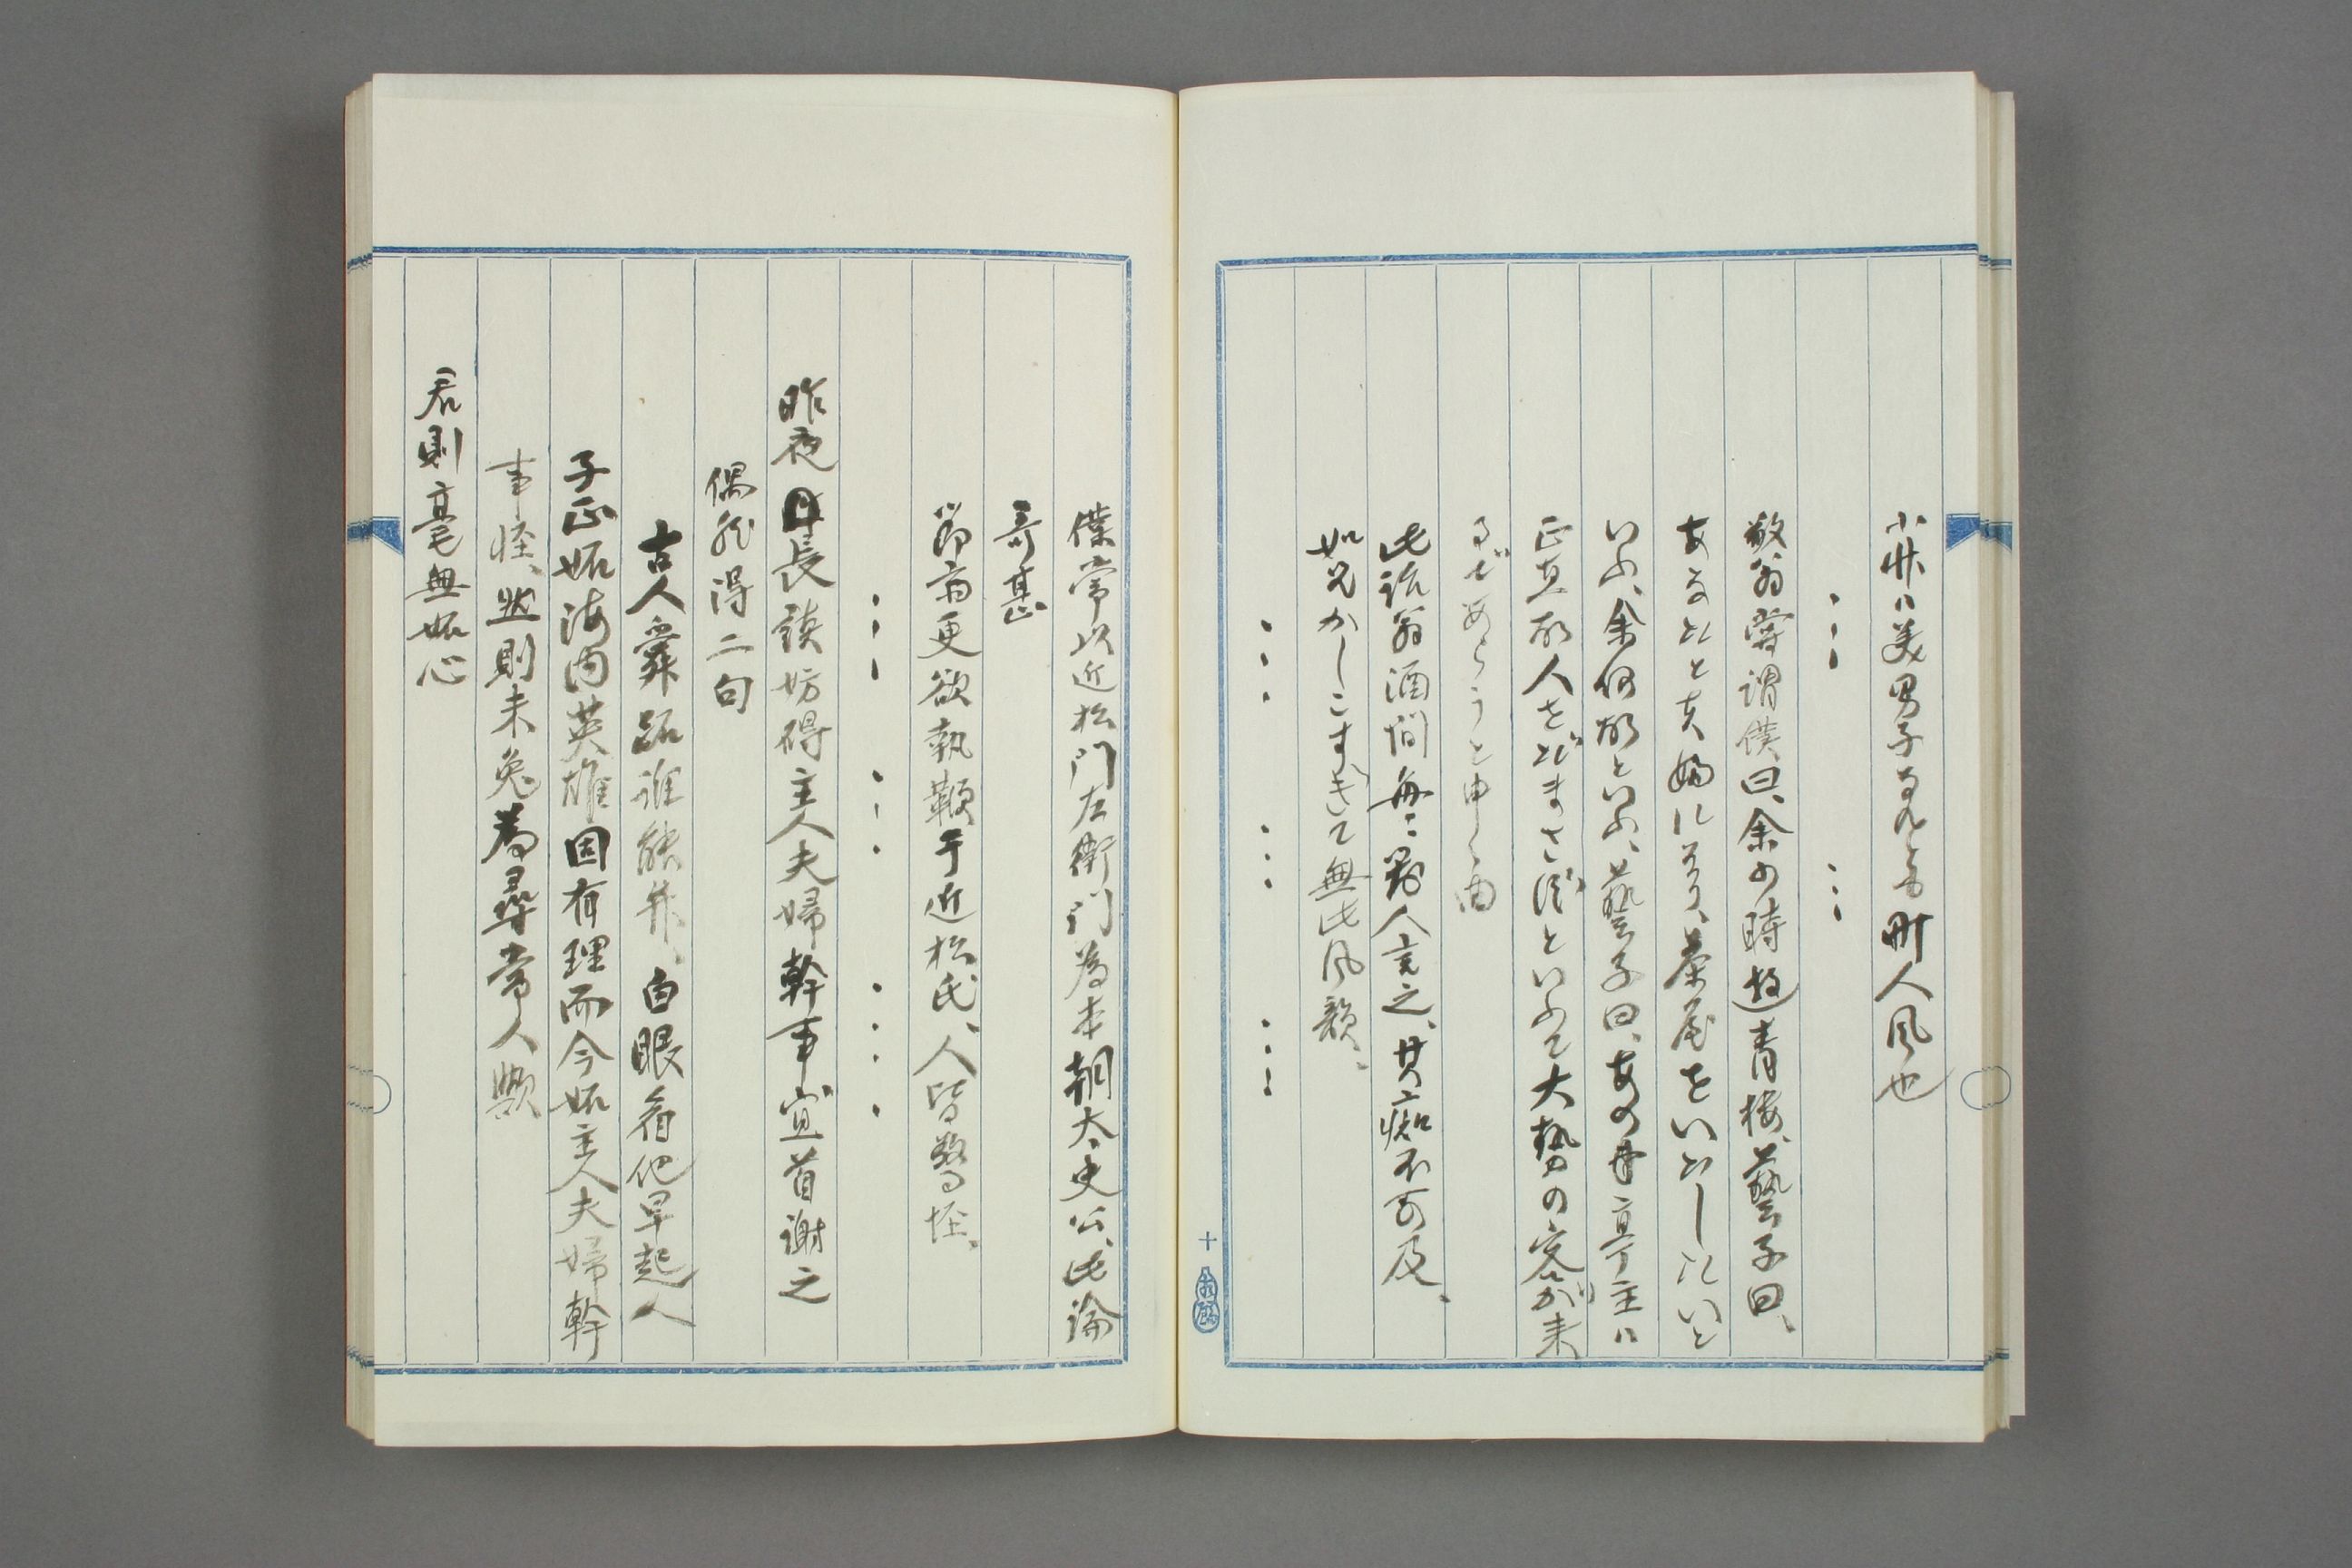 小竹ハ美男子なれとも町人風也
敬翁嘗謂僕曰、余少時遊青楼、藝子曰、
あなたと夫婦になり、茶屋をいたしたいと
いふ、余何故といふ、藝子曰、あの亭主ハ
正直な人さびまさぬといふて大勢の客が来
るであらうと申し由
此話翁酒間毎ニ對人言之、其痴不可及、
如兄かしこすぎて無此風韻、
僕常以近松門左衛門為本朝太史公、此論
奇甚
節齋更欲執鞭于近松氏、人皆驚怪、
昨夜日長談妨碍主人夫婦幹事、宜首謝之
偶然得二句
古人舜跖誰能弁、白眼看他早起人
子正妬海内英雄固有理而今妬主人夫婦幹
事怪、然則未免為尋常人歟
君則毫無妬心
十